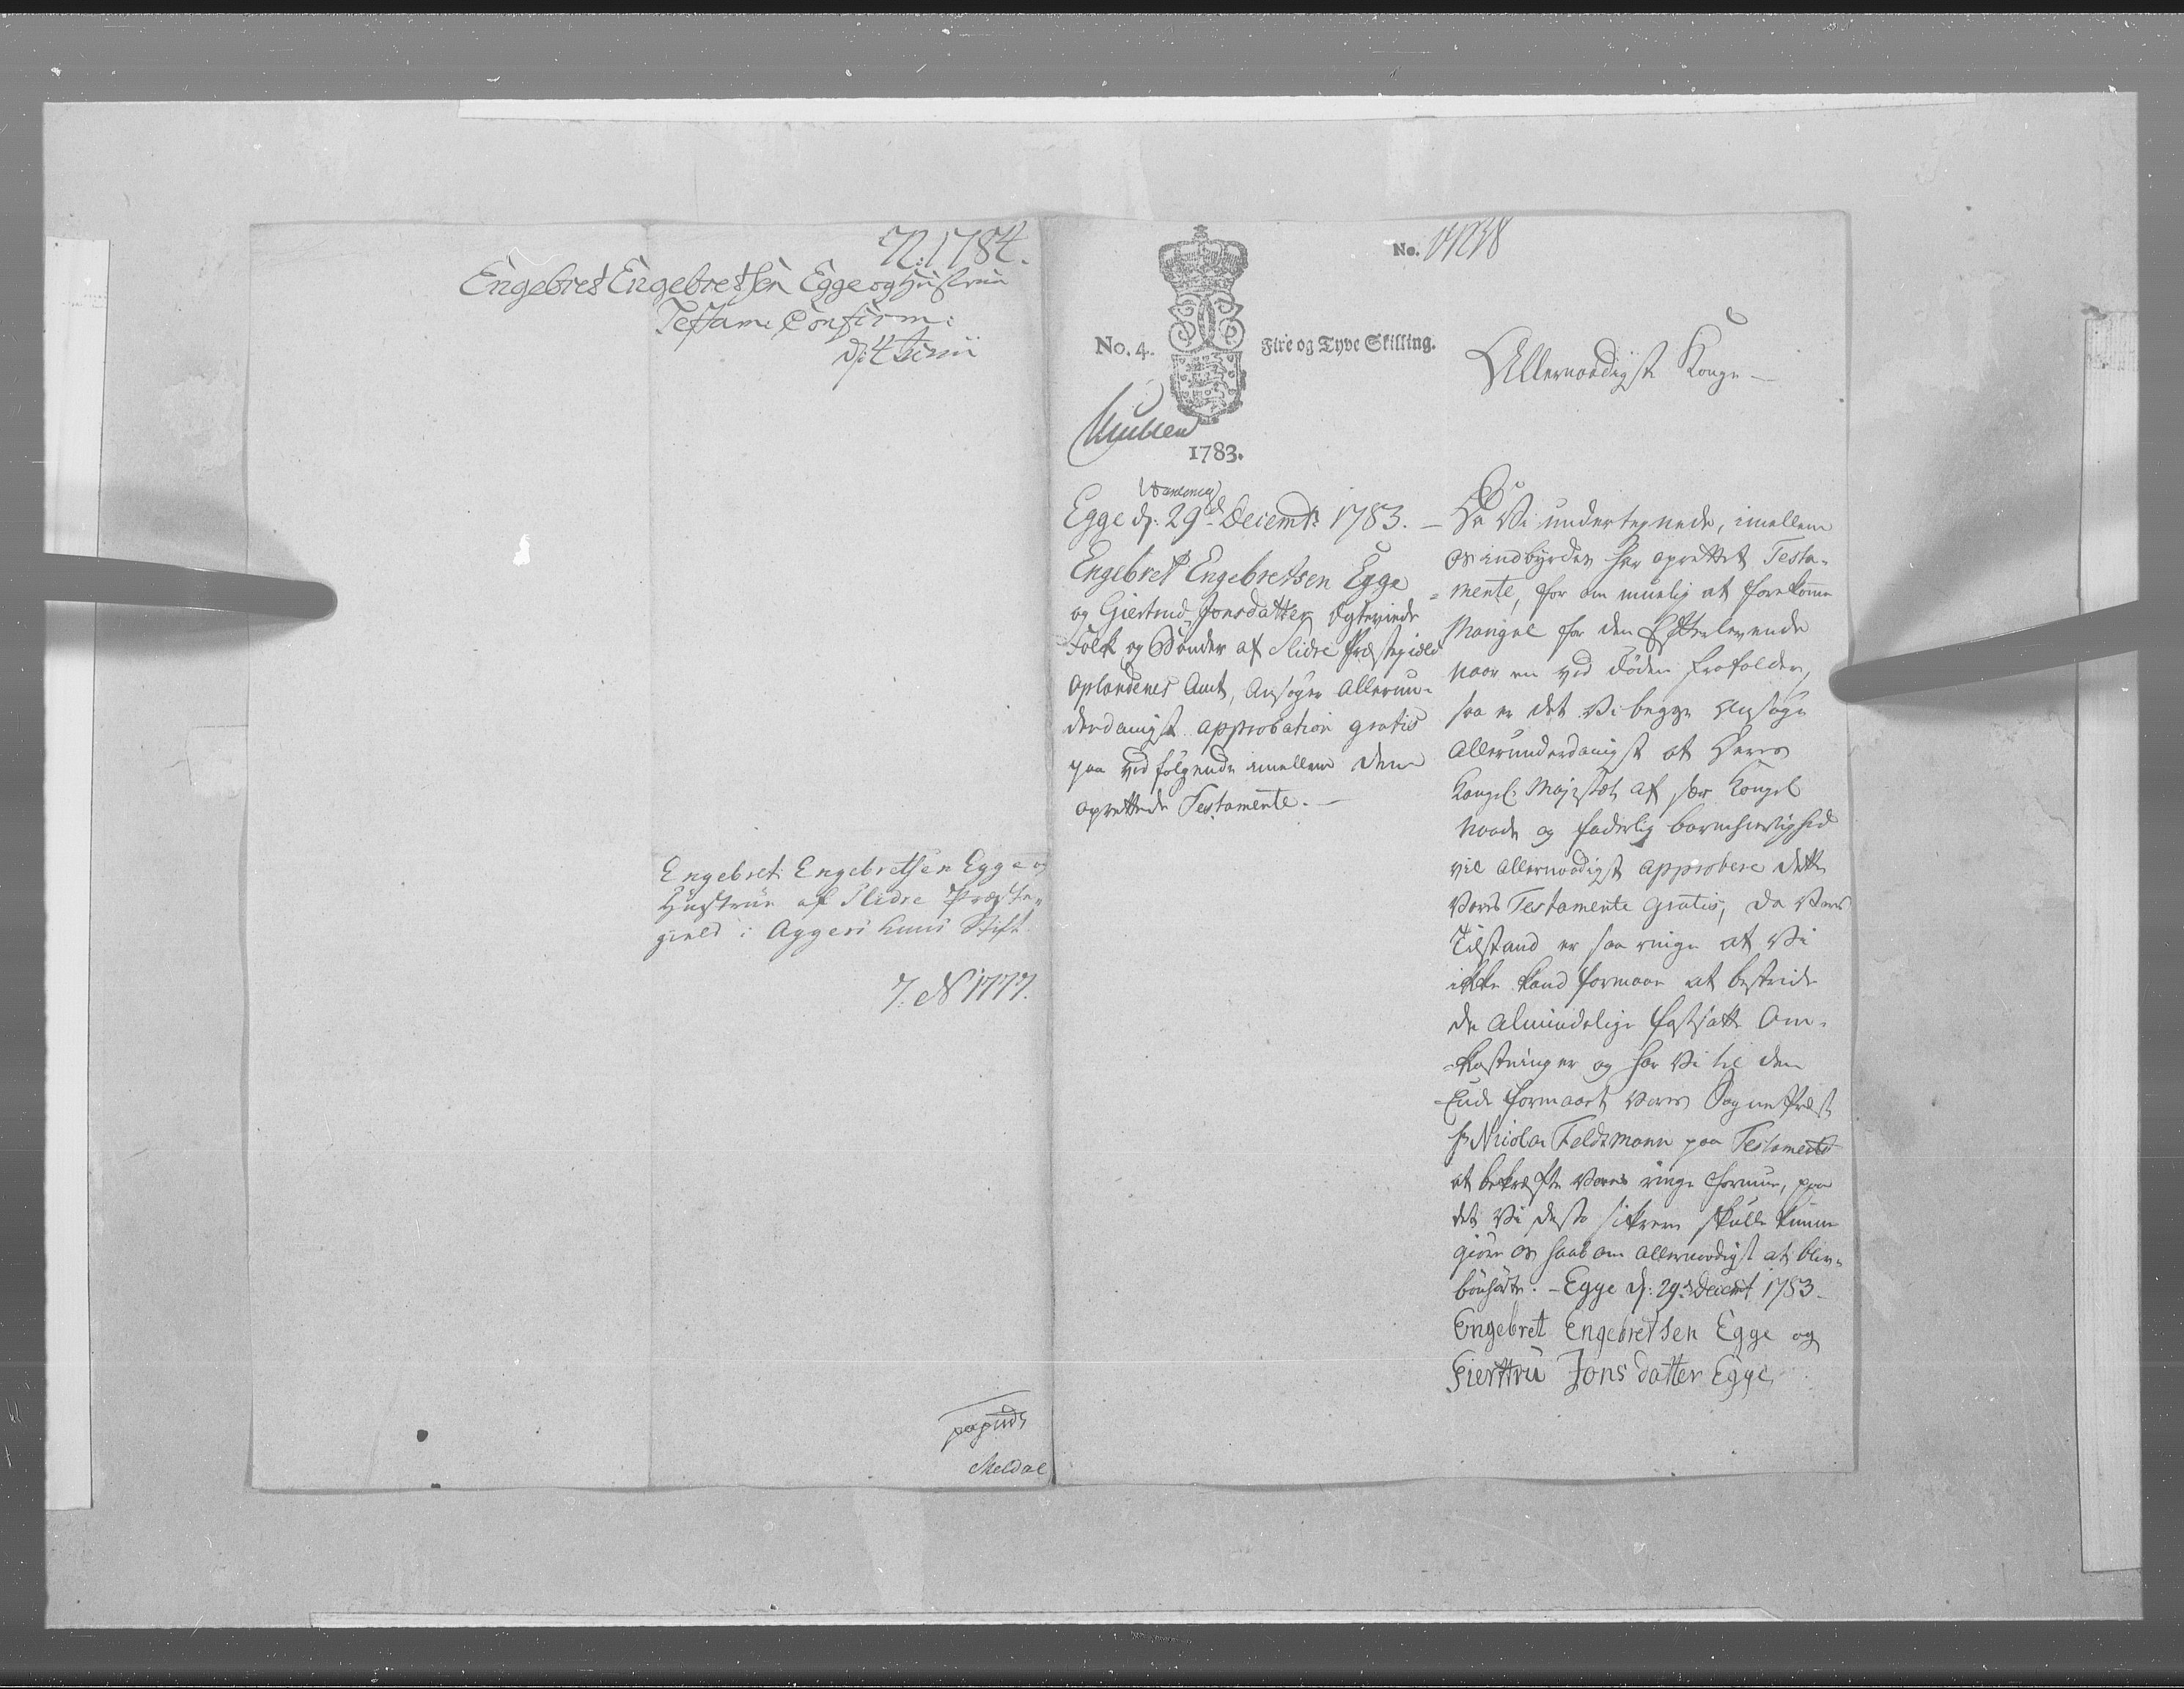 N: 1784.
Engebret Engebretsen Egge og Hustrue
Testam: Confirm:
d: 4 Junii
Engebret Engebretsen Egge og
Hustrue af Slidre Præste„
gield i Aggershuus Stift.
7. N 1777.
Meldal
No.
No. 4. Fire og Tyve Skilling.
1783.
Egge d: 29de Decembr: 1783. —
Engebret Engebretsen Egge
og Giertrud Jonsdatter Egteviede
Folk og Bønder af Slidre Præstegield
Oplandenes Amt, Ansøger Allerun-
derdanigst approbation gratis
paa vedfølgende imellem dem
oprettede Testamente. —
Allernaadigste Konge —
Da Vi undertegnede, imellem
os indbyrdes har oprettet Testa-
mente, for om muelig at forekomme
Mangel for den Efterlevende
naar en ved Døden frafalder,
saa er det Vi begge Ansøge
allerunderdanigst at Deres
Kongel: Majestæt af sær Kongel
Naade og faderlig barmhiertighed
vil allernaadigst approbere dette
Vores Testamente gratis, da Vores
Tilstand er saa ringe at Vi
ikke kand formaae at bestride
de almindelige fastsatte Om-
kostninger og har Vi til den
Ende formaaet Vores Sogne Præst
Hr Nicolai Feldtmann paa Testamentet
at bekræfte Vores ringe Formue, paa
det Vi desto sikrere skulle kunne
giøre os haab om allernaadigst at blive
bønhørte. – Egge d: 29de Decembr 1783 –
Engebret Engebretsen Egge og
Gierttru Jons datter Egge